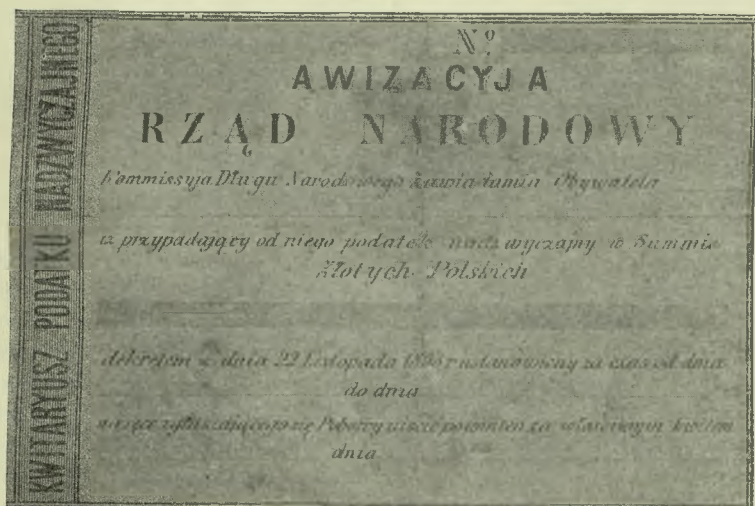 KWITARYUSZ PODATKU NADZWYCZAJNEGO
Nº
AWIZACYJA
RZĄD NARODOWY
Kommissyja Długu Narodowego zawiadamia Obywatela
iż przypadający od niego podatek nadzwyczajny w Summie
Złotych Polskich
dekretem z dnia 22 Listopada ustanowiony za czas od dnia
do dnia
na ręce zgłaszającego się Poborcy uiścić powinien za właściwym kwitem
dnia